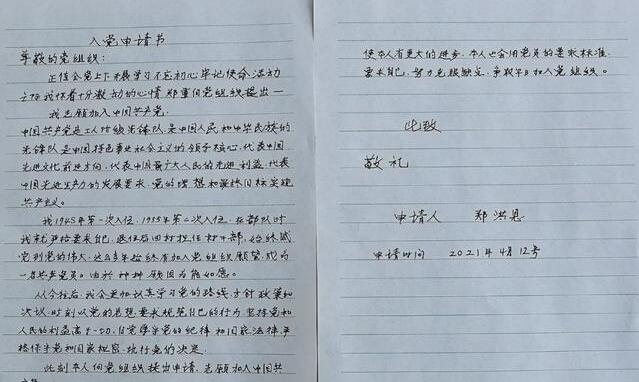 入党申请书
尊敬的党组织：
正值全党上下开展学习不忘初心牢记使命活动
之际我怀着十分激动的心情郑重向党组织提出一
我志愿加入中国共产党.
中国共产党是工人阶级先锋队是中国人民和中华民族的
先锋队是中国特色事业社会主义的领导核心，代表中国
先进文化前进方向，代表中国最广大人民的先进利益，代表
中国先进生产力的发展要求，党的理想和最终目标实现
共产主义。
我1948年第一次入伍，1955年第二次入伍，在部队时
我就严格要求自己，退伍后回村担任村干部，始终感
觉到党的伟大，这么多年始终有加入党组织愿望，成为
一名共产党员。由于种种原因未能如愿。
从今往后，我会更加认真学习党的路线，方针政策和
决议，时刻以党的思想要求规范自己的行为坚持党和
人民的利益高于一切，自觉遵守党的纪律和国家法律，严
格保守党和国家秘密，执行党的决定.
此刻本人向党组织提出申请，志愿加入中国共
使本人有更大的进步，本人也会用党员的要求标准
要求自己，努力克服缺点，争取早日加入党组织。
此致
敬礼
申请人 郑洪恩
申请时间 2021年4月12号